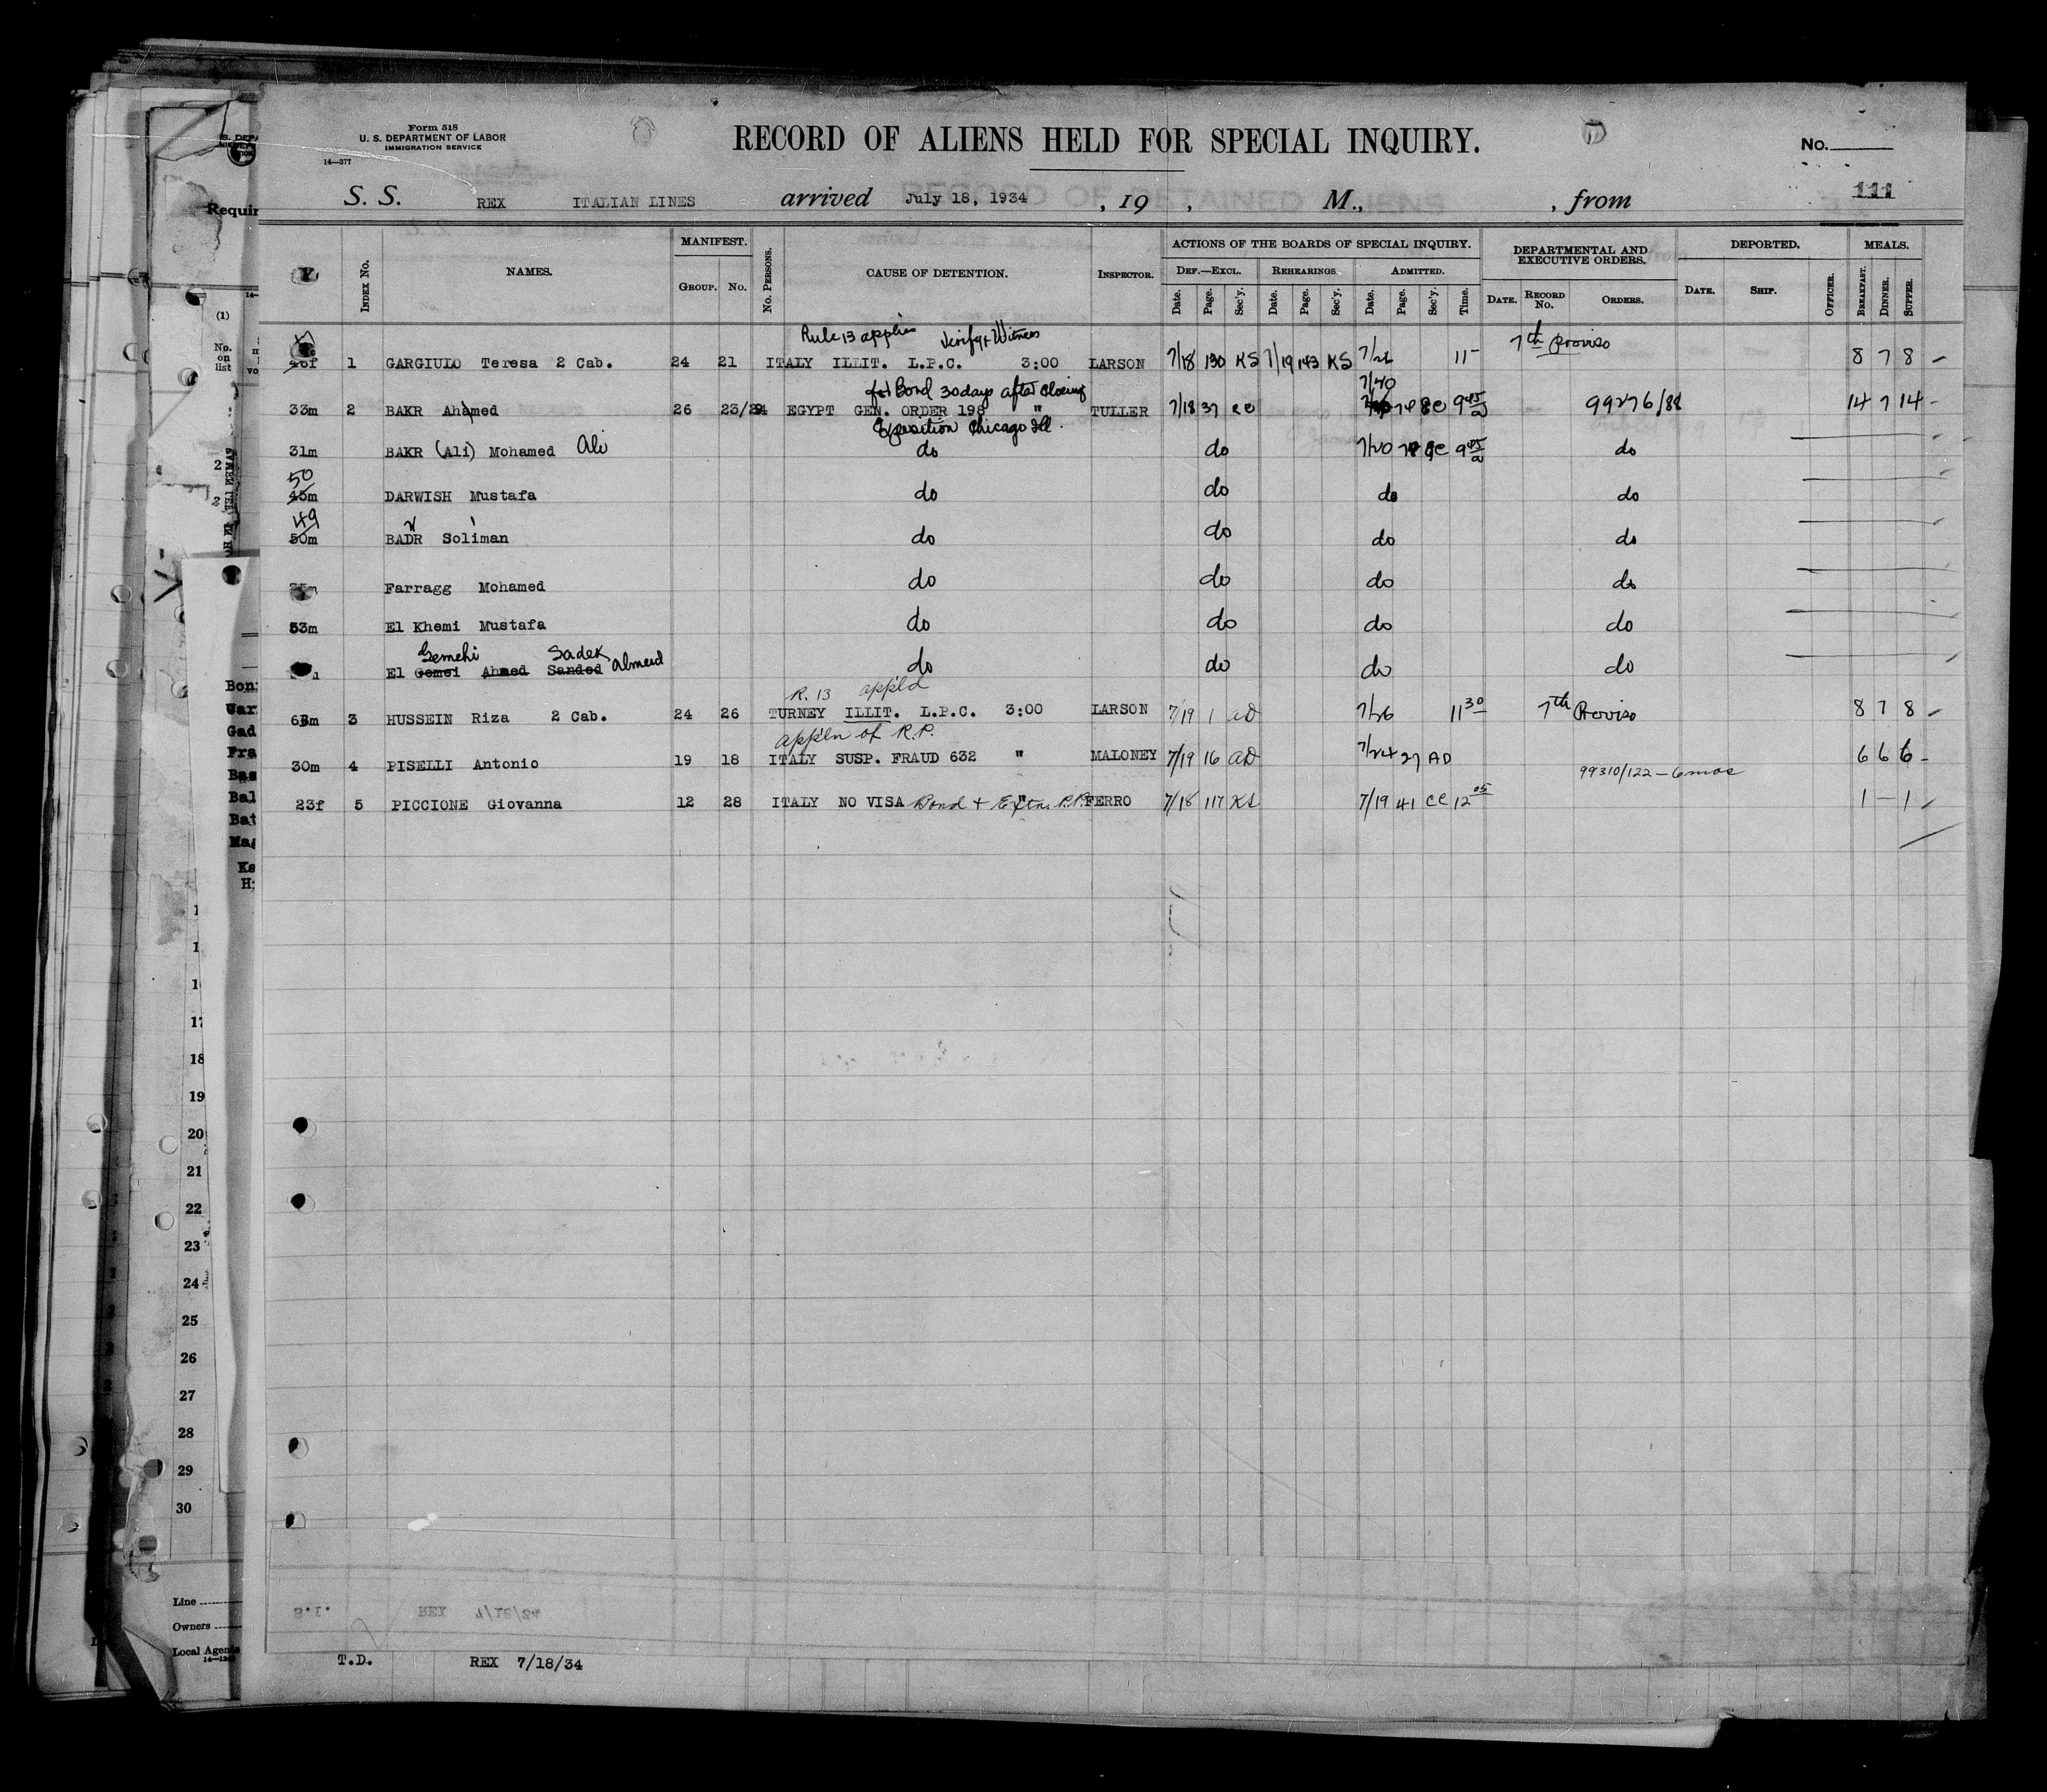 Form 518
U. S. DEPARTMENT OF LABOR
IMMIGRATION SERVICE
14—377
RECORD OF ALIENS HELD FOR SPECIAL INQUIRY.
No.
111
S. S. REX ITALIAN LINES arrived July 18, 1934, 19 , M., , from
Index No. NAMES. MANIFEST. Group. No. No. Persons. CAUSE OF DETENTION. Inspector.
ACTIONS OF THE BOARDS OF SPECIAL INQUIRY. Def.—Excl. Rehearings. Admitted.
Date. Page. Sec'y. Date. Page. Sec'y. Date. Page. Sec'y. Time.
DEPARTMENTAL AND EXECUTIVE ORDERS. Date. Record No. Orders.
DEPORTED. Date. Ship. Officer.
MEALS. Breakfast. Dinner. Supper.
Rule 13 applies Verify + Witness 7th Proviso
1 GARGIULO Teresa 2 Cab. 24 21 ITALY ILLIT. L.P.C. 3:00 LARSON 7/18 130 KS 7/19 143 KS 7/26 11 8 7 8
Bond 30 days after closing
33m 2 BAKR Ahamed 26 EGYPT GEN. ORDER 198 " TULLER 7/18 37 9 45 99276/88 14 7 14
Exposition Chicago Ill.
31m BAKR (Ali) Mohamed Ali do do 7/20 9 45 do
50
45m DARWISH Mustafa do do do do
49
50m BADR Soliman do do do do
Farragg Mohamed do do do do
53m El Khemi Mustafa do do do do
Gemehi Sadek
El Gemei Ahmed Sanded Ahmed do do do do
R. 13 appld
3 HUSSEIN Riza 2 Cab. 24 26 TURNEY ILLIT. L.P.C. 3:00 LARSON 7/19 1 AD 7/26 11 30 7th Proviso 8 7 8
appln of R.P.
30m 4 PISELLI Antonio 19 18 ITALY SUSP. FRAUD 632 " MALONEY 7/19 16 AD 7/24 27 AD 6 6 6
99310/122 — 6 mos
23f 5 PICCIONE Giovanna 12 28 ITALY NO VISA Bond + Extn. R.P. " FERRO 7/18 117 KS 7/19 41 CC 12 05 1 — 1
T.D. REX 7/18/34
Requir
(1)
No.
on
list
2
3
Bon
War
Gad
Fra
Bas
Bal
Bat
Mag
Ke
H
17
18
19
20
21
22
23
24
25
26
27
28
29
30
Line
Owners
Local Agents